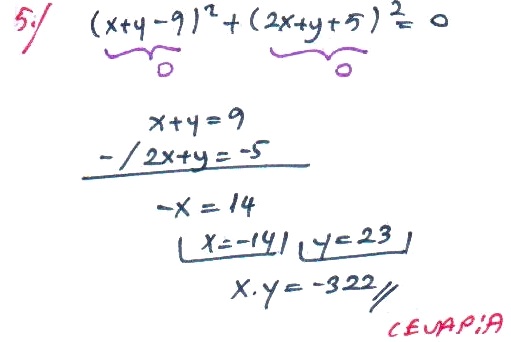 5-/ (x+y-9)²+(2x+y+5)²=0
0 0
x+y=9
-/2x+y=-5
-x=14
x=-14 y=23
x.y=-322//
CEVAP:A